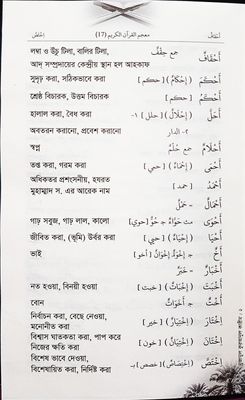 اختص معجم القرآن الكريم (17) أحقاف
أَحْقَافٌ جمع حِقْفٌ লম্বা ও উচু টিলা, বালির টিলা,
আদ সম্প্রদায়ের কেন্দ্রীয় স্থান হল আহকাফ
أَحْكَمَ (إِحْكَامٌ) [حكم] সুদৃঢ় করা, সঠিকভাবে করা
أَحْكَمُ [حكم] শ্রেষ্ঠ বিচারক, উত্তম বিচারক
أَحَلَّ (إِحْلَالٌ) [حلل] ১- হালাল করা, বৈধ করা
২- الدار অবতরন করানো, প্রবেশ করানো
أَحْلَامٌ جمع حُلْمٌ স্বপ্ন
أَحْمَى (إِحْمَاءٌ) [حمي] তপ্ত করা, গরম করা
أَحْمَدُ [حمد] অধিকতর প্রশংসনীয়, হযরত
মুহাম্মাদ স. এর আরেক নাম
أَحْمَالٌ - حَمْلٌ
أَحْوَى مث حَوَّاءُ ج حُوٌّ [حوي] গাঢ় সবুজ, গাঢ় লাল, কালো
أَحْيَا (إِحْيَاءٌ) [حيي] জীবিত করা, (ভূমি) উর্বর করা
أَخٌ ج إِخْوَةٌ، إِخْوَانٌ [أخو] ভাই
أَخْبَارٌ - خَبَرٌ
أَخْبَتَ (إِخْبَاتٌ) [خبت] নত হওয়া, বিনয়ী হওয়া
أُخْتٌ ج أَخَوَاتٌ বোন
اِخْتَارَ (اِخْتِيَارٌ) [خير] নির্বাচন করা, বেছে নেওয়া,
মনোনীত করা
اِخْتَانَ (اِخْتِيَانٌ) [خون] বিশ্বাস ঘাতকতা করা, পাপ করে
নিজের ক্ষতি করা
اِخْتَصَّ (اِخْتِصَاصٌ) [خصص] ب- বিশেষ ভাবে দেওয়া,
বিশেষায়িত করা, নির্দিষ্ট করা